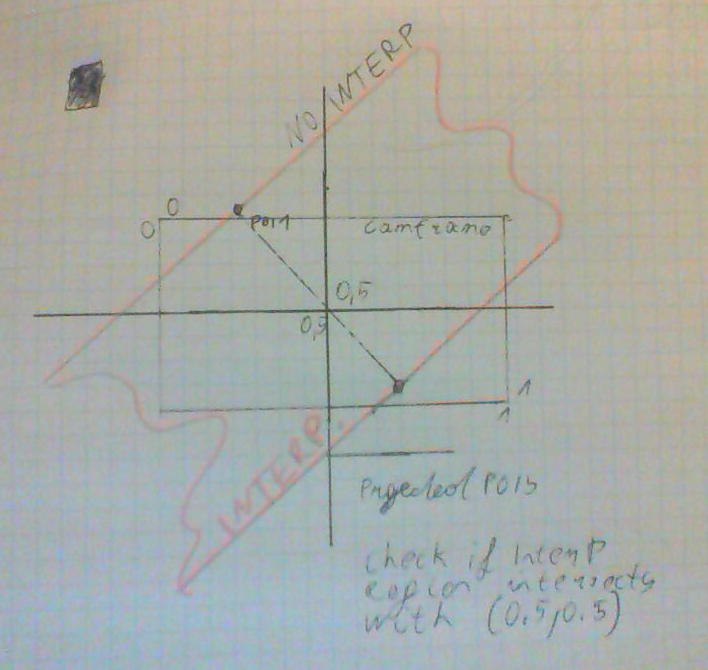 NO INTERP
0
0
POI1
camframe
0,5
0,5
1
1
INTERP.
Projected POIs
check if Interp
region intersects
with (0.5,0.5)